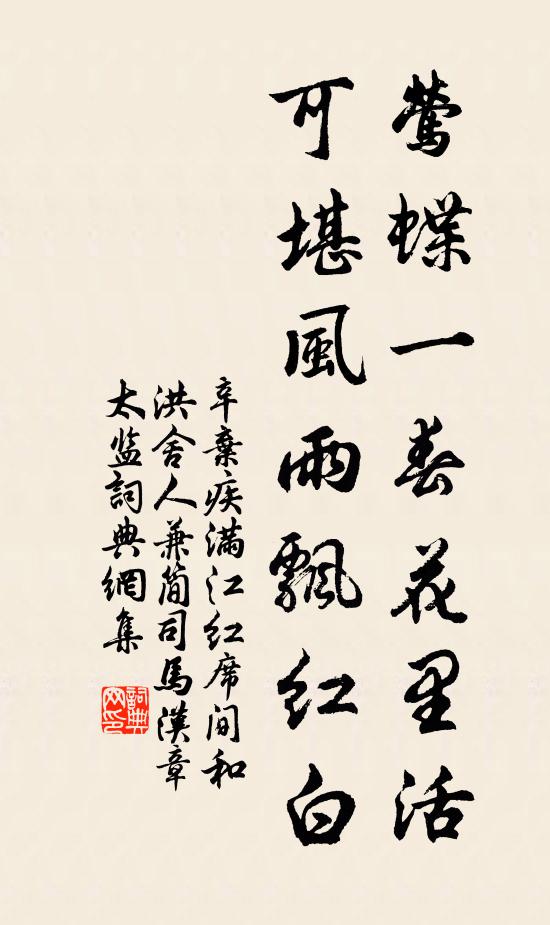 鶯蝶一春花里活
可堪風雨飄紅白
辛棄疾滿江紅席间和
洪舍人兼簡司馬漢章
太监詞典網集
詞典
网印